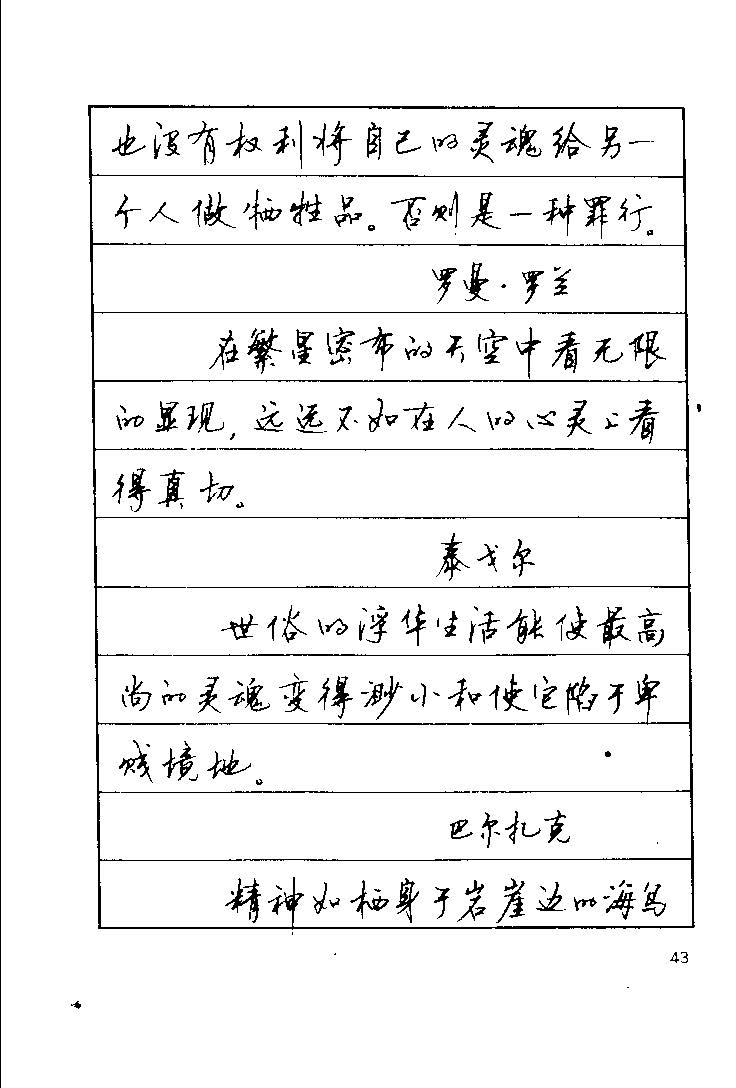 也没有权利将自己的灵魂给另一
个人做牺牲品。否则是一种罪行。
罗曼·罗兰
在繁星密布的天空中看无限
的显现,远远不如在人的心灵上看
得真切。
泰戈尔
世俗的浮华生活能使最高
尚的灵魂变得渺小和使它陷于卑
贱境地。
巴尔扎克
精神如栖身于岩崖边的海鸟
43